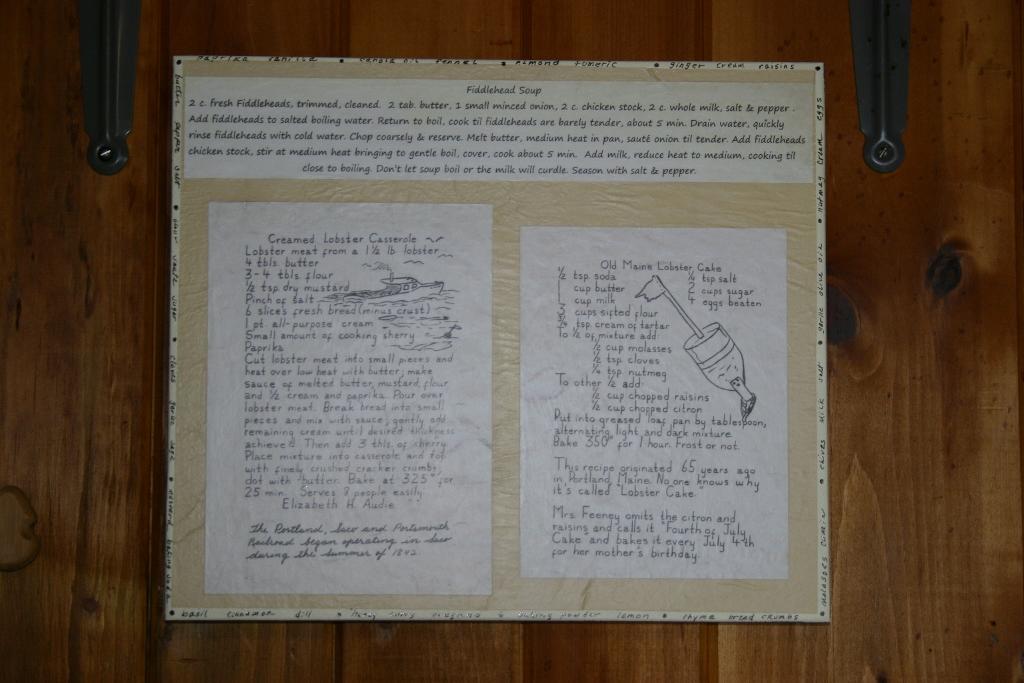 paprika vanilla • canola oil fennel • almond tumeric • ginger cream raisins
Fiddlehead Soup
2 c. fresh Fiddleheads, trimmed, cleaned. 2 tab. butter, 1 small minced onion, 2 c. chicken stock, 2 c. whole milk, salt & pepper.
Add fiddleheads to salted boiling water. Return to boil, cook til fiddleheads are barely tender, about 5 min. Drain water, quickly
rinse fiddleheads with cold water. Chop coarsely & reserve. Melt butter, medium heat in pan, sauté onion til tender. Add fiddleheads
chicken stock, stir at medium heat bringing to gentle boil, cover, cook about 5 min. Add milk, reduce heat to medium, cooking til
close to boiling. Don't let soup boil or the milk will curdle. Season with salt & pepper.
Creamed Lobster Casserole
Lobster meat from a 1½ lb lobster
4 tbls. butter
3-4 tbls flour
½ tsp dry mustard
Pinch of salt
6 slices fresh bread (minus crust)
1 pt. all-purpose cream
Small amount of cooking sherry
Paprika
Cut lobster meat into small pieces and
heat over low heat with butter; make
sauce of melted butter, mustard, flour
and ½ cream and paprika. Pour over
lobster meat. Break bread into small
pieces and mix with sauce; gently add
remaining cream until desired thickness
achieved. Then add 3 tbls. of sherry.
Place mixture into casserole and top
with finely crushed cracker crumbs;
dot with butter. Bake at 325° for
25 min. Serves 8 people easily.
Elizabeth H. Audie
The Portland, Saco and Portsmouth
Railroad began operating in Saco
during the summer of 1842
Old Maine Lobster Cake
½ tsp. soda ¼ tsp salt
1 cup butter 2 cups sugar
1 cup milk 4 eggs beaten
3 cups sifted flour
¾ tsp cream of tartar
To ½ of mixture add:
½ cup molasses
½ tsp. cloves
¼ tsp nutmeg
To other ½ add:
½ cup chopped raisins
½ cup chopped citron
Put into greased loaf pan by tablespoon,
alternating light and dark mixture.
Bake 350° for 1 hour. Frost or not.
This recipe originated 65 years ago
in Portland, Maine. No one knows why
it's called "Lobster Cake."
Mrs. Feeney omits the citron and
raisins and calls it "Fourth of July
Cake and bakes it every July 4th
for her mother's birthday.
nutmeg cream eggs
garlic olive oil
chives milk salt
molasses cumin
basil cinnamon dill • baking powder lemon • thyme bread crumbs